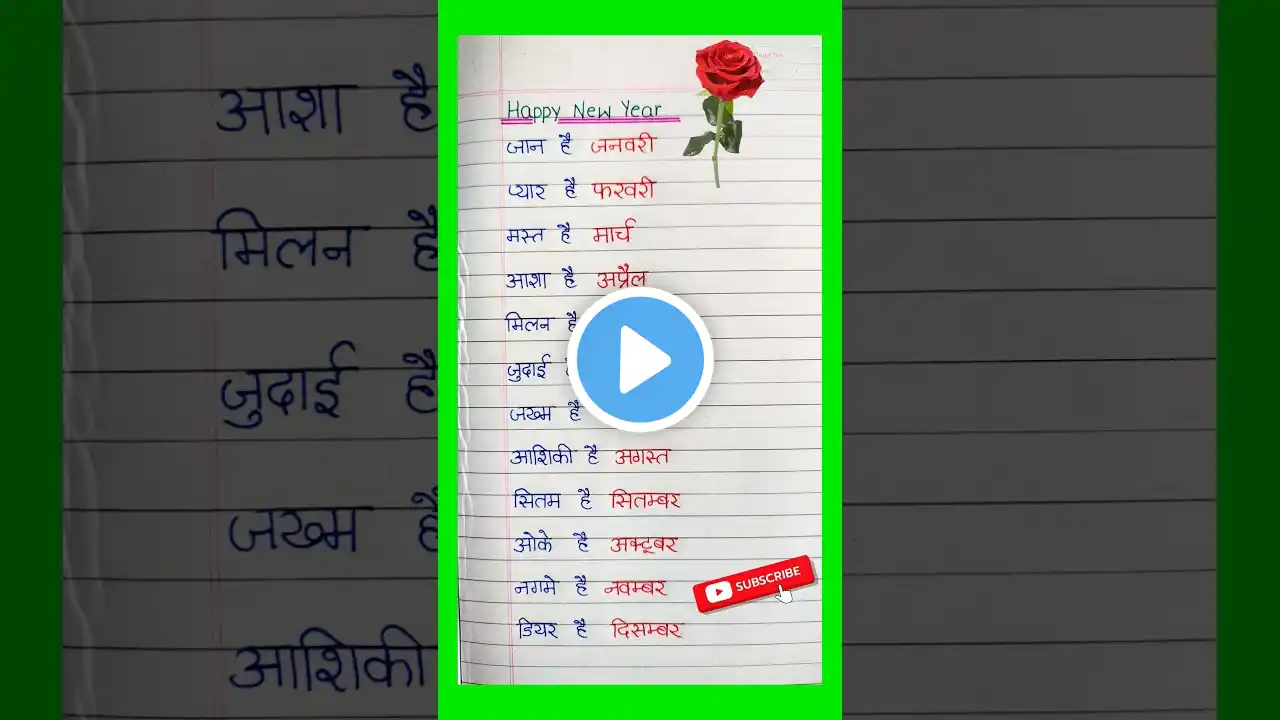 Happy New Year
जान है जनवरी
प्यार है फरवरी
मस्त है मार्च
आशा है अप्रैल
मिलन है
जुदाई
जख्म है
आशिकी है अगस्त
सितम है सितम्बर
ओके है अक्टूबर
नगमे है नवम्बर
डियर है दिसम्बर
SUBSCRIBE
आशा है
मिलन है
जुदाई है
जख्म है
आशिकी